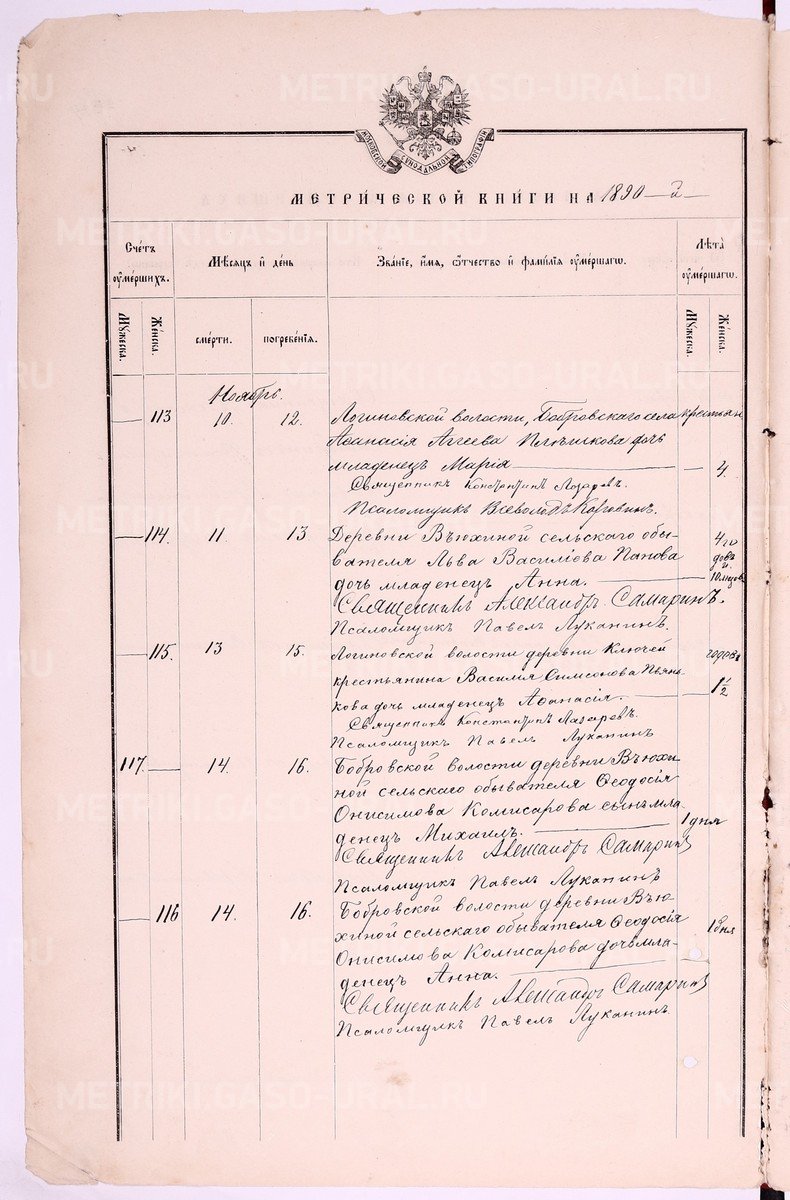 МОСКОВСКОЙ СѴНОДАЛЬНОЙ ТИПОГРАФІИ
МЕТРИ́ЧЕСКОЙ КНИ́ГИ НА 1890 — й —
Сче́тъ ᲂу҆ме́ршихъ.
Мѣ́сяцъ и҆ де́нь
Зва́нїе, и҆́мѧ, ѻ҆́тчество и҆ фами́лїѧ ᲂу҆ме́ршагѡ.
Лѣ́та ᲂу҆ме́ршагѡ.
Мꙋ́жеска.
Же́нска.
сме́рти.
погребе́нїѧ.
Мꙋ́жеска.
Же́нска.
Ноябрь.
— 113 10. 12. Логиновской волости, Бобровскаго села крестьян
Аѳанасія Аггеева Плѣшкова дочь
младенецъ Марія — — 4
Священникъ Константинъ Лазаревъ.
Псаломщикъ Всеволодъ Коровинъ.
— 114. 11 13 Деревни Вьюхиной сельскаго обы- 4 го
вателя Льва Василіева Попова довъ и
дочь младенецъ Анна. — 10 мцов
Священникъ Александръ Самаринъ.
Псаломщикъ Павелъ Луканинъ.
— 115. 13 15. Логиновской волости деревни Ключей годовъ
крестьянина Василія Симеонова Пьян-
кова дочь младенецъ Аѳанасія. — — 1½
Священникъ Константинъ Лазаревъ.
Псаломщикъ Павелъ Луканинъ
117. — 14. 16. Бобровской волости деревни Вьюхи-
ной сельскаго обывателя Ѳеодосія
Онисимова Комисарова сынъ мла-
денецъ Михаилъ. — 1 дня
Священникъ Александръ Самаринъ
Псаломщикъ Павелъ Луканинъ
— 116 14. 16. Бобровской волости деревни Вью-
хиной сельскаго обывателя Ѳеодосія 1 дня
Онисимова Комисарова дочь мла-
денецъ Анна. —
Священникъ Александръ Самаринъ
Псаломщикъ Павелъ Луканинъ.
METRIKI.GASO-URAL.RU